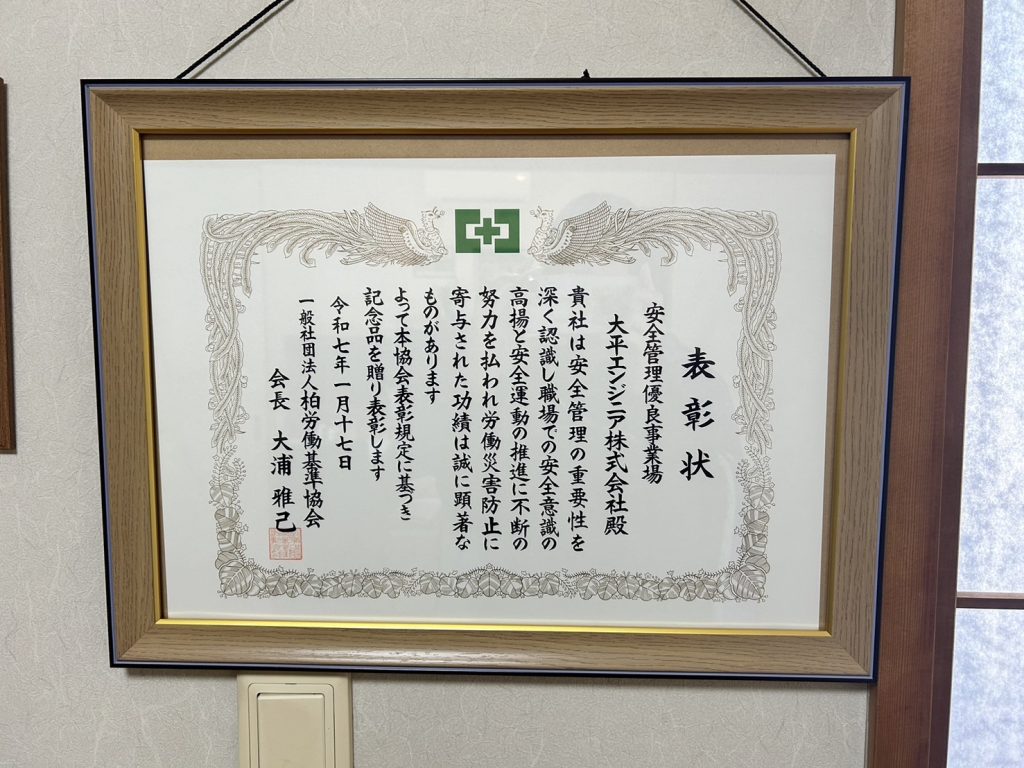 表彰状
安全管理優良事業場
大平エンジニア株式会社殿
貴社は安全管理の重要性を
深く認識し職場での安全意識の
高揚と安全運動の推進に不断の
努力を払われ労働災害防止に
寄与された功績は誠に顕著な
ものがあります
よって本協会表彰規定に基づき
記念品を贈り表彰します
令和七年一月十七日
一般社団法人柏労働基準協会
会長 大浦雅己